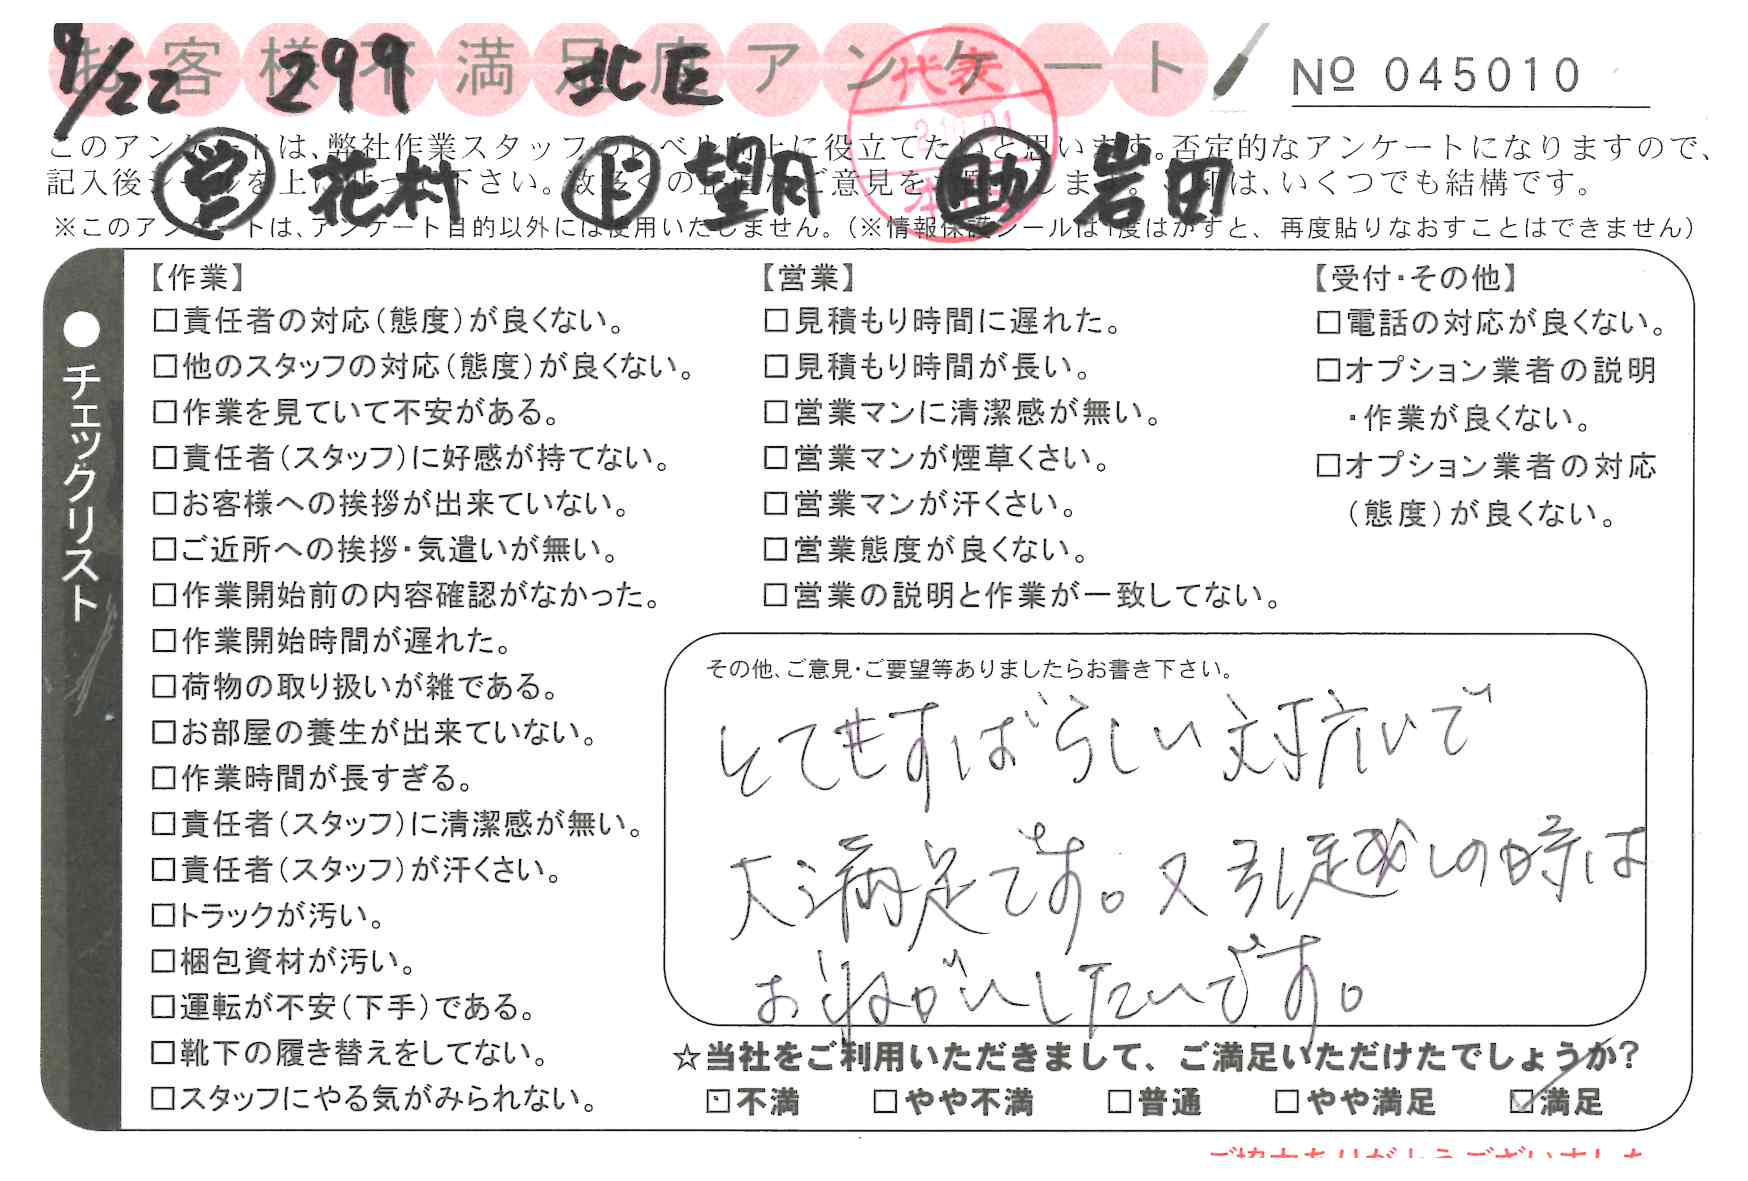 お客様不満足度アンケート
9/22 299 北区
№ 045010
このアンケートは、弊社作業スタッフのレベル向上に役立てたいと思います。否定的なアンケートになりますので、
記入後シールを上に貼って下さい。数多くの正直なご意見をお願いします。 は、いくつでも結構です。
営 花村 ド 望月 助 岩田
代表
※このアンケートは、アンケート目的以外には使用いたしません。(※情報保護シールは1度はがすと、再度貼りなおすことはできません)
●チェックリスト
【作業】
□責任者の対応(態度)が良くない。
□他のスタッフの対応(態度)が良くない。
□作業を見ていて不安がある。
□責任者(スタッフ)に好感が持てない。
□お客様への挨拶が出来ていない。
□ご近所への挨拶・気遣いが無い。
□作業開始前の内容確認がなかった。
□作業開始時間が遅れた。
□荷物の取り扱いが雑である。
□お部屋の養生が出来ていない。
□作業時間が長すぎる。
□責任者(スタッフ)に清潔感が無い。
□責任者(スタッフ)が汗くさい。
□トラックが汚い。
□梱包資材が汚い。
□運転が不安(下手)である。
□靴下の履き替えをしてない。
□スタッフにやる気がみられない。
【営業】
□見積もり時間に遅れた。
□見積もり時間が長い。
□営業マンに清潔感が無い。
□営業マンが煙草くさい。
□営業マンが汗くさい。
□営業態度が良くない。
□営業の説明と作業が一致してない。
【受付・その他】
□電話の対応が良くない。
□オプション業者の説明
・作業が良くない。
□オプション業者の対応
(態度)が良くない。
その他、ご意見・ご要望等ありましたらお書き下さい。
とてもすばらしい対応いで
大満足です。又引越しの時は
おねがいしたいです。
☆当社をご利用いただきまして、ご満足いただけたでしょうか?
□不満 □やや不満 □普通 □やや満足 ☑満足
ご協力ありがとうございました